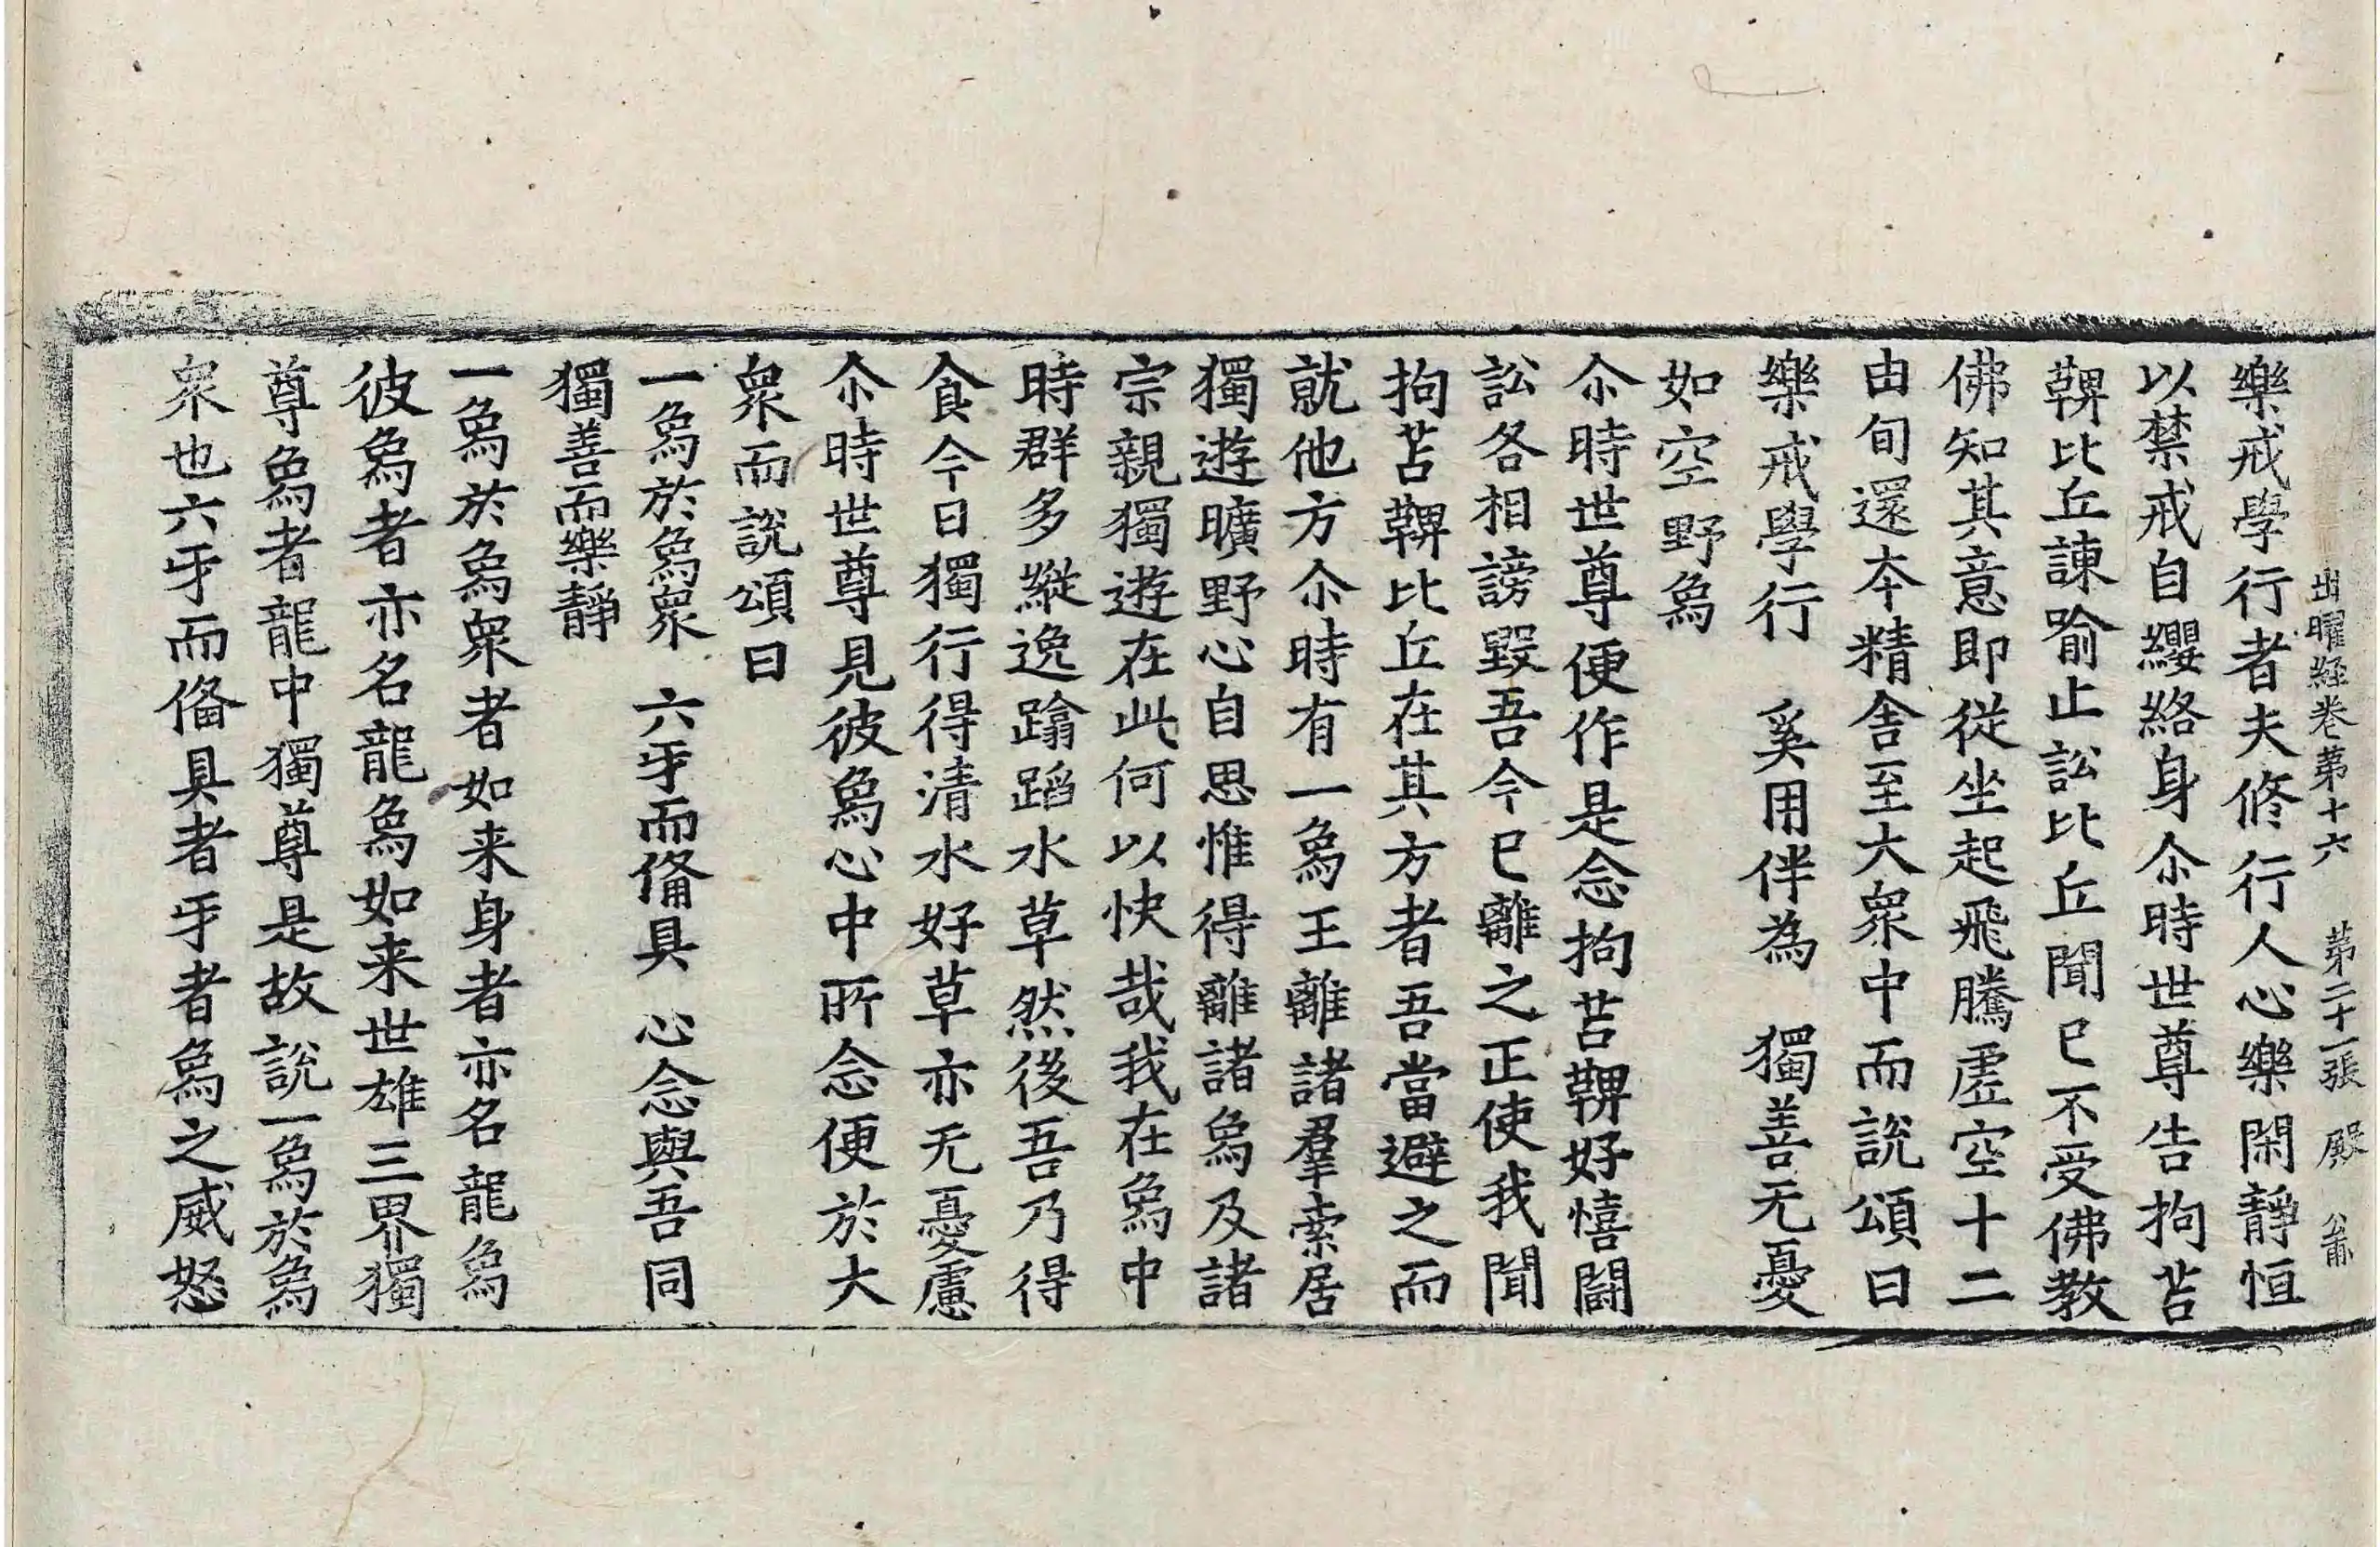 出曜經卷苐十六　苐二十一張　殿
樂戒學行者夫修行人心樂閑靜恒
以禁戒自纓絡身尒時世尊告拘苫
鞞比丘諫喻止訟比丘聞已不受佛教
佛知其意即從坐起飛騰虛空十二
由旬還夲精舍至大衆中而說頌曰
樂戒學行　奚用伴為　獨善无憂
如空野象
尒時世尊便作是念拘苫鞞好憘鬪
訟各相謗毀吾今已離之正使我聞
拘苫鞞比丘在其方者吾當避之而
就他方尒時有一象王離諸羣索居
獨遊曠野心自思惟得離諸象及諸
宗親獨遊在此何以快哉我在象中
時群多縱逸踰蹈水草然後吾乃得
食今日獨行得清水好草亦无憂慮
尒時世尊見彼象心中所念便於大
衆而說頌曰
一象於象衆　六牙而俻具　心念與吾同
獨善而樂靜
一象於象衆者如来身者亦名龍象
彼象者亦名龍象如来世雄三界獨
尊象者龍中獨尊是故說一象於象
衆也六牙而俻具者牙者象之威怒